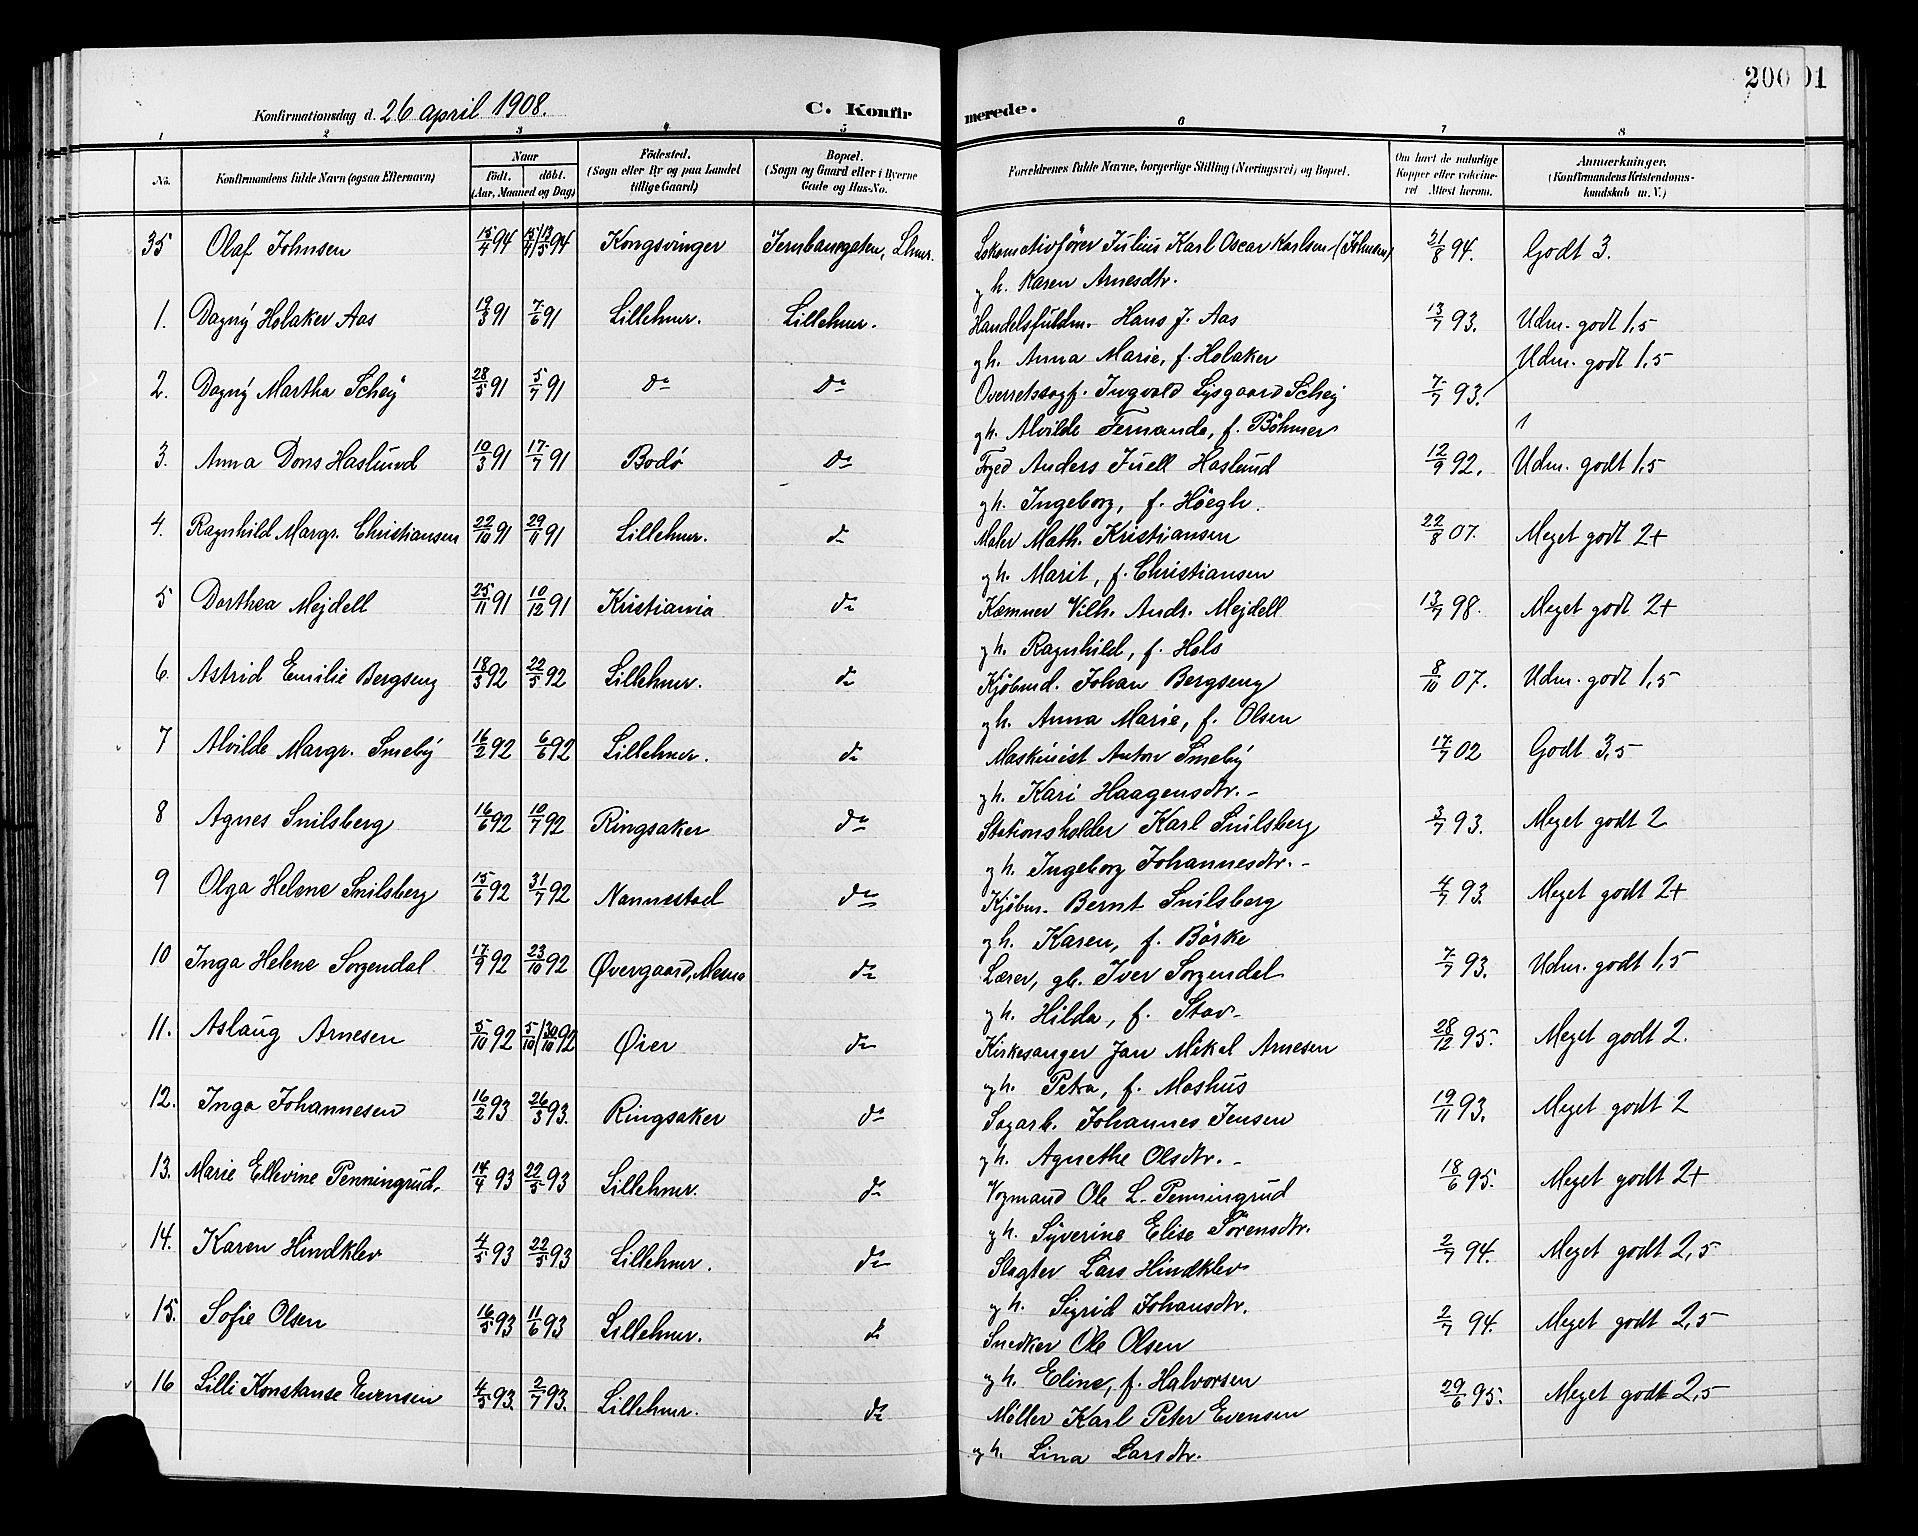 Konfirmationsdag d. 26 april 1908. C. Konfir merede. 200 01
1 2 3 4 5 6 7 8
No. Konfirmandens fulde Navn (ogsaa Efternavn) Naar födt. döbt. (Aar, Maaned og Dag) Födested. (Sogn eller By og paa Landet tillige Gaard) Bopæl. (Sogn og Gaard eller i Byerne Gade og Hus-No. Forældrenes fulde Navne, borgerlige Stilling (Næringsvei) og Bopæl. Om havt de naturlige Kopper eller vakcineret Attest herom. Anmærkninger. (Konfirmandens Kristendomskundskab m. V.)
35 Olaf Johnsen 15/4 94 15/4 | 13/5 94 Kongsvinger Jernbanegaten, Lhmr. Lokomotivfører Julius Karl Oscar Karlsen (Johnsen) 21/8 94. Godt 3.
og h. Karen Arnesdtr.
1. Dagny Holaker Aas 19/3 91 7/6 91 Lillehmr. Lillehmr. Handelsfuldm. Hans J. Aas 13/7 93. Udm. godt 1,5
og h. Anna Marie, f. Holaker Udm. godt 1,5
2. Dagny Martha Schey 28/5 91 5/7 91 do do Overretssagf. Ingvald Lysgaard Schey 7/7 93.
og h. Alvilde Fernanda, f. Böhmer
3. Anna Dons Haslund 10/3 91 17/7 91 Bodö do Foged Anders Juell Haslund 12/9 92. Udm. godt 1,5
og h. Ingeborg, f. Höegh.
4. Ragnhild Margr. Christiansen 22/10 91 29/11 91 Lillehmr. do Maler Math. Kristiansen 22/8 07. Meget godt 2+
og h. Marit, f. Christiansen
5 Dorthea Mejdell 25/11 91 10/12 91 Kristiania do Kæmner Vilh. Andr. Mejdell 13/7 98. Meget godt 2+
og h. Ragnhild, f. Hols
6. Astrid Emilie Bergseng 18/3 92 22/5 92 Lillehmr. do Kjøbmd. Johan Bergseng 8/10 07. Udm. godt 1,5
og h. Anna Marie, f. Olsen
7 Alvilde Margr. Smeby 16/2 92 6/6 92 Lillehmr. do Maskinist Anton Smeby 17/7 02 Godt 3,5
og h. Kari Haagensdtr. -
8 Agnes Snilsberg 16/6 92 10/7 92 Ringsaker do Stationsholder Karl Snilsberg 3/7 93. Meget godt 2
og h. Ingeborg Johannesdtr. -
9 Olga Helene Snilsberg 15/6 92 31/7 92 Nannestad do Kjöbm. Bernt Snilsberg 4/7 93. Meget godt 2+
og h. Karen, f. Börke
10 Inga Helene Sorgendal 17/9 92 23/10 92 Øvergaard, Mesna do Lærer, gb. Iver Sorgendal 7/7 93. Udm. godt 1,5
og h. Hilda, f. Stav-
11. Aslaug Arnesen 5/10 92 5/10 | 30/10 92 Øier do Kirkesanger Jan Mikal Arnesen 28/12 95. Meget godt 2.
og h. Petra, f. Moshus
12. Inga Johannesen 16/2 93 26/3 93. Ringsaker do Sagarb. Johannes Jensen 19/11 93. Meget godt 2
og h. Agnethe Olsdtr. -
13. Marie Ellevine Penningrud. 14/4 93 22/5 93 Lillehmr. do Vognmand Ole L. Penningrud 18/6 95. Meget godt 2+
og h. Syverine Elise Sörensdtr.
14. Karen Hindklev 4/5 93 22/5 93 Lillehmr. do Slagter Lars Hindklev 2/7 94. Meget godt 2,5
og h. Sigrid Johansdtr.
15. Sofie Olsen 16/5 93 11/6 93 Lillehmr. do Snedker Ole Olsen 2/7 94. Meget godt 2,5
og h. Eline, f. Halvorsen
16 Lilli Konstanse Evensen 4/5 93. 2/7 93. Lillehmr. do Möller Karl Peter Evensen 29/6 95. Meget godt 2,5
og h. Lina Larsdtr.